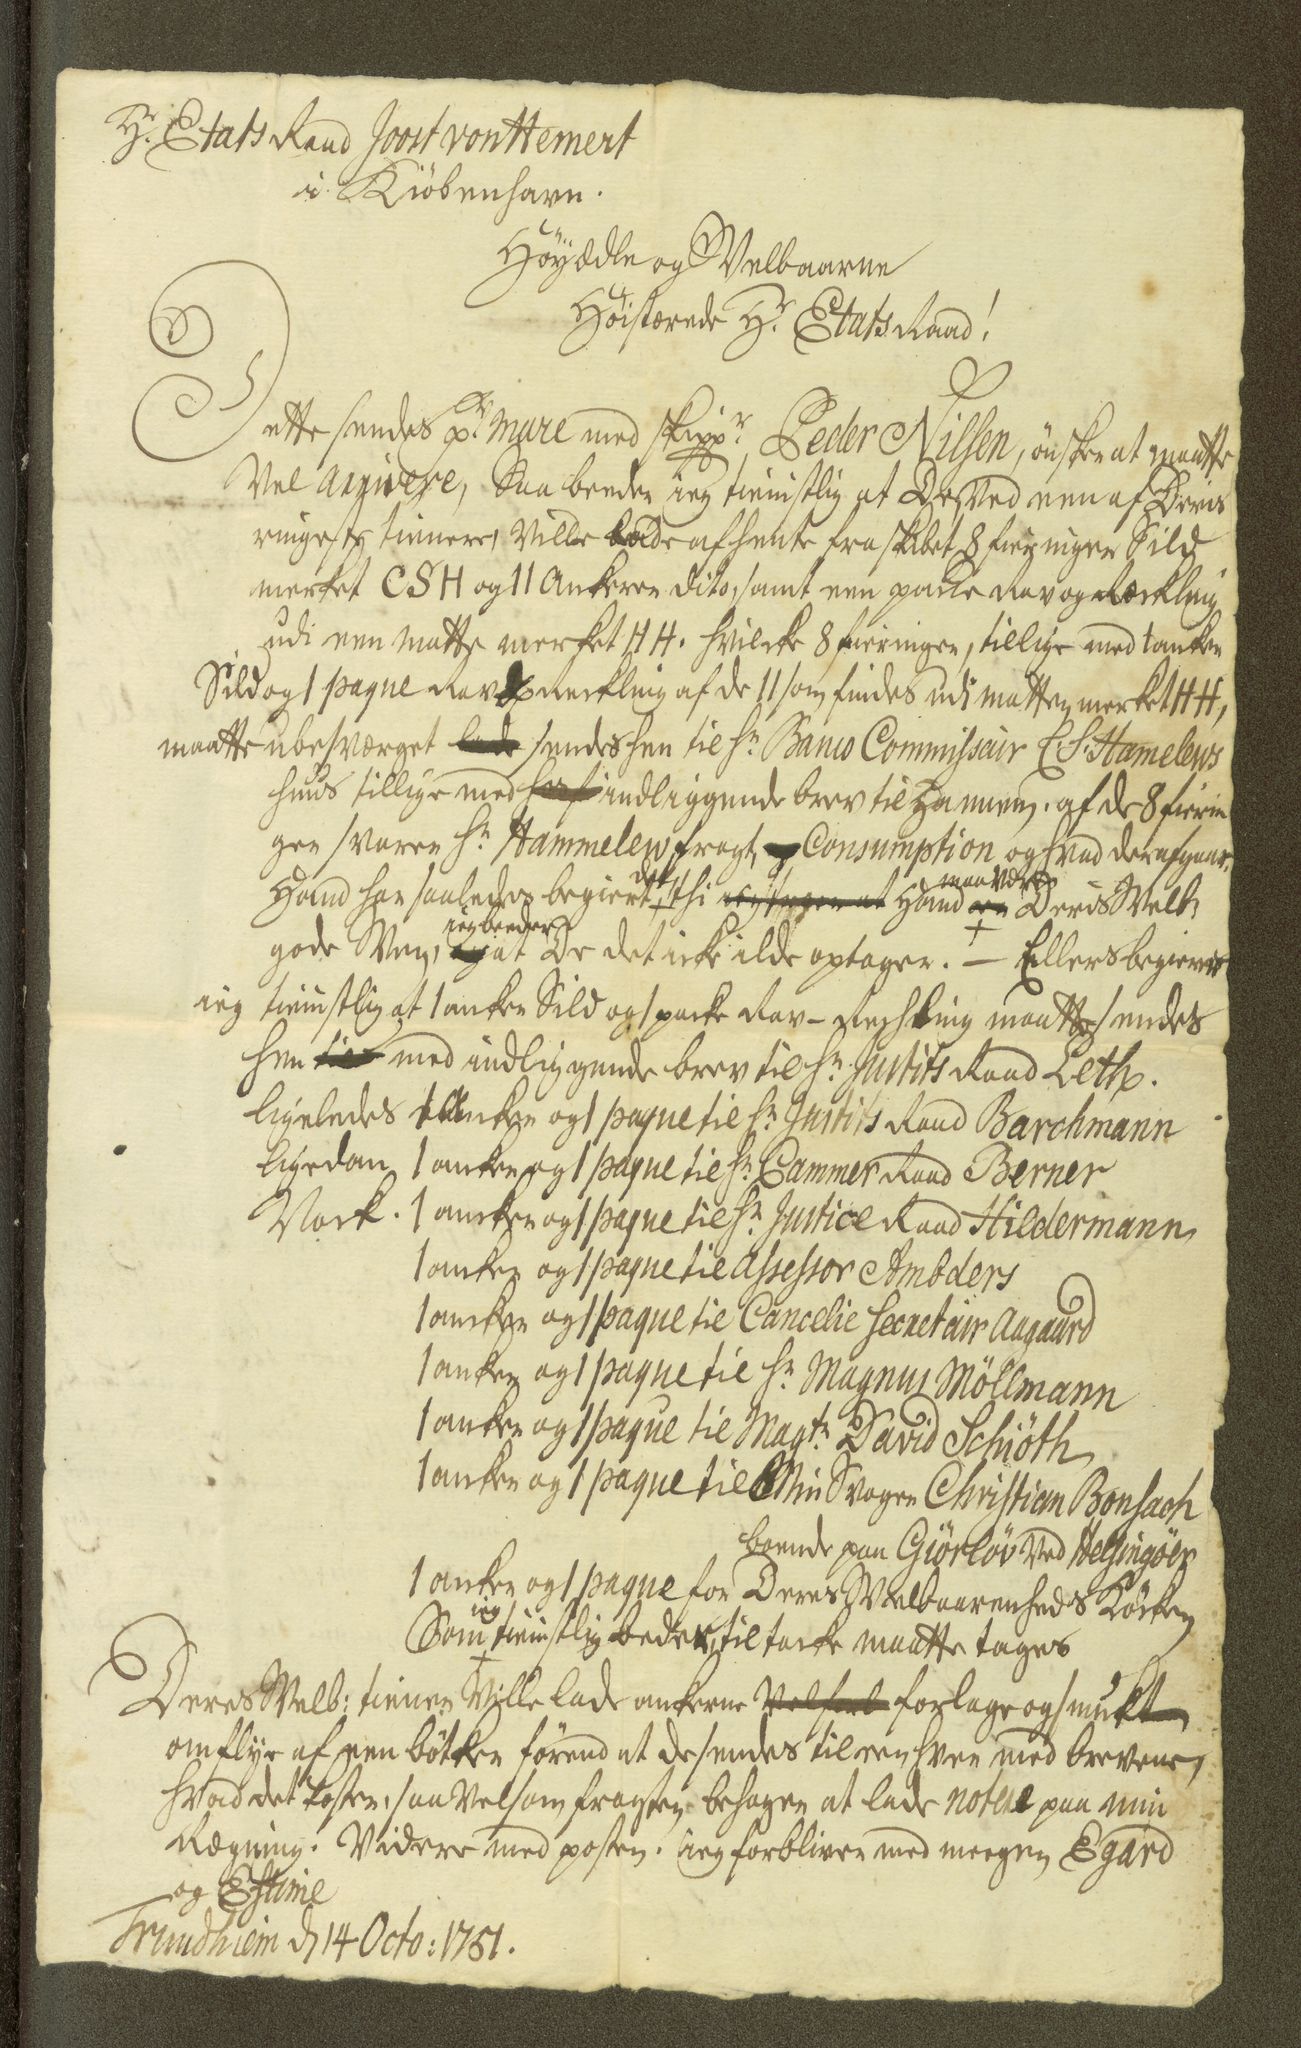 Hr. Etats Raad Joost von Hemert
i Kiöbenhavn.
Höyædle og Velbaarne
Höistærede Hr. Etats Raad!
Dette sendes pr. mare med skippr. Peder Nilsen, önsker at maatte
Vel arrivere, Saa beeder ieg tienistlig at De, Ved een af Deris
ringeste tienere, Ville lade afhente fra skibet 8 fierringer Sild
merket CSH og 11 Ankere dito, samt een packe Rav og Reckling
udi een Matte merket HH. hvilcke 8 fieringer, tillige med 1 anker
Sild og 1 paque Rav og Reckling af de 11 som findes udi matten merket HH,
maatte ubesværget lade sendes hen til hr. Banco Commissair E S. Hamelews
huus tillige med indliggende brev til hannem. af de 8 fierin
ger svarer hr. Hammelew fragt, Consumption og hvad deraf gaar.
Hand har saaledes begiert det, thi Hand maa være Deris Velb.
gode Ven, ieg beeder at De det icke ilde optager. — Ellers begierer
ieg tienistlig at 1 anker Sild og 1 packe Rav-Reckling maatte sendes
hen til med indliggende brev til hr. Justits Raad Leth.
ligeledes 1 Ancker og 1 paque til hr. Justits Raad Barchmann
ligedan 1 anker og 1 paque til hr. Cammer Raad Berner
Nock. 1 ancker og 1 paque til hr. Justice Raad Hildermann
1 anker og 1 paque til Assessor Ambders
1 ancker og 1 paque til Cancelie Secretair Aagaard
1 anker og 1 paque til hr. Magnus Möllmann
1 anker og 1 paque til Magtr. David Schiöth
1 anker og 1 paque til Min Svoger Christian Bonsach
boende paa Giörlöv Ved Helsingöer
1 anker og 1 paque for Deres Velbaarenheds Köcken
Som ieg tienistlig beder, til tacke maatte tages
Deres Velb: tiener Ville lade ankerne forlage og smukt
omflye af een bötker förend at de sendes til een hver med brevene,
hvad det koster, saa Vel som fragten behager at lade notere paa min
Rægning. Videre med posten. ieg forbliver med meegen Egard
og Estime
Trundhiem d 14 Octo: 1751.